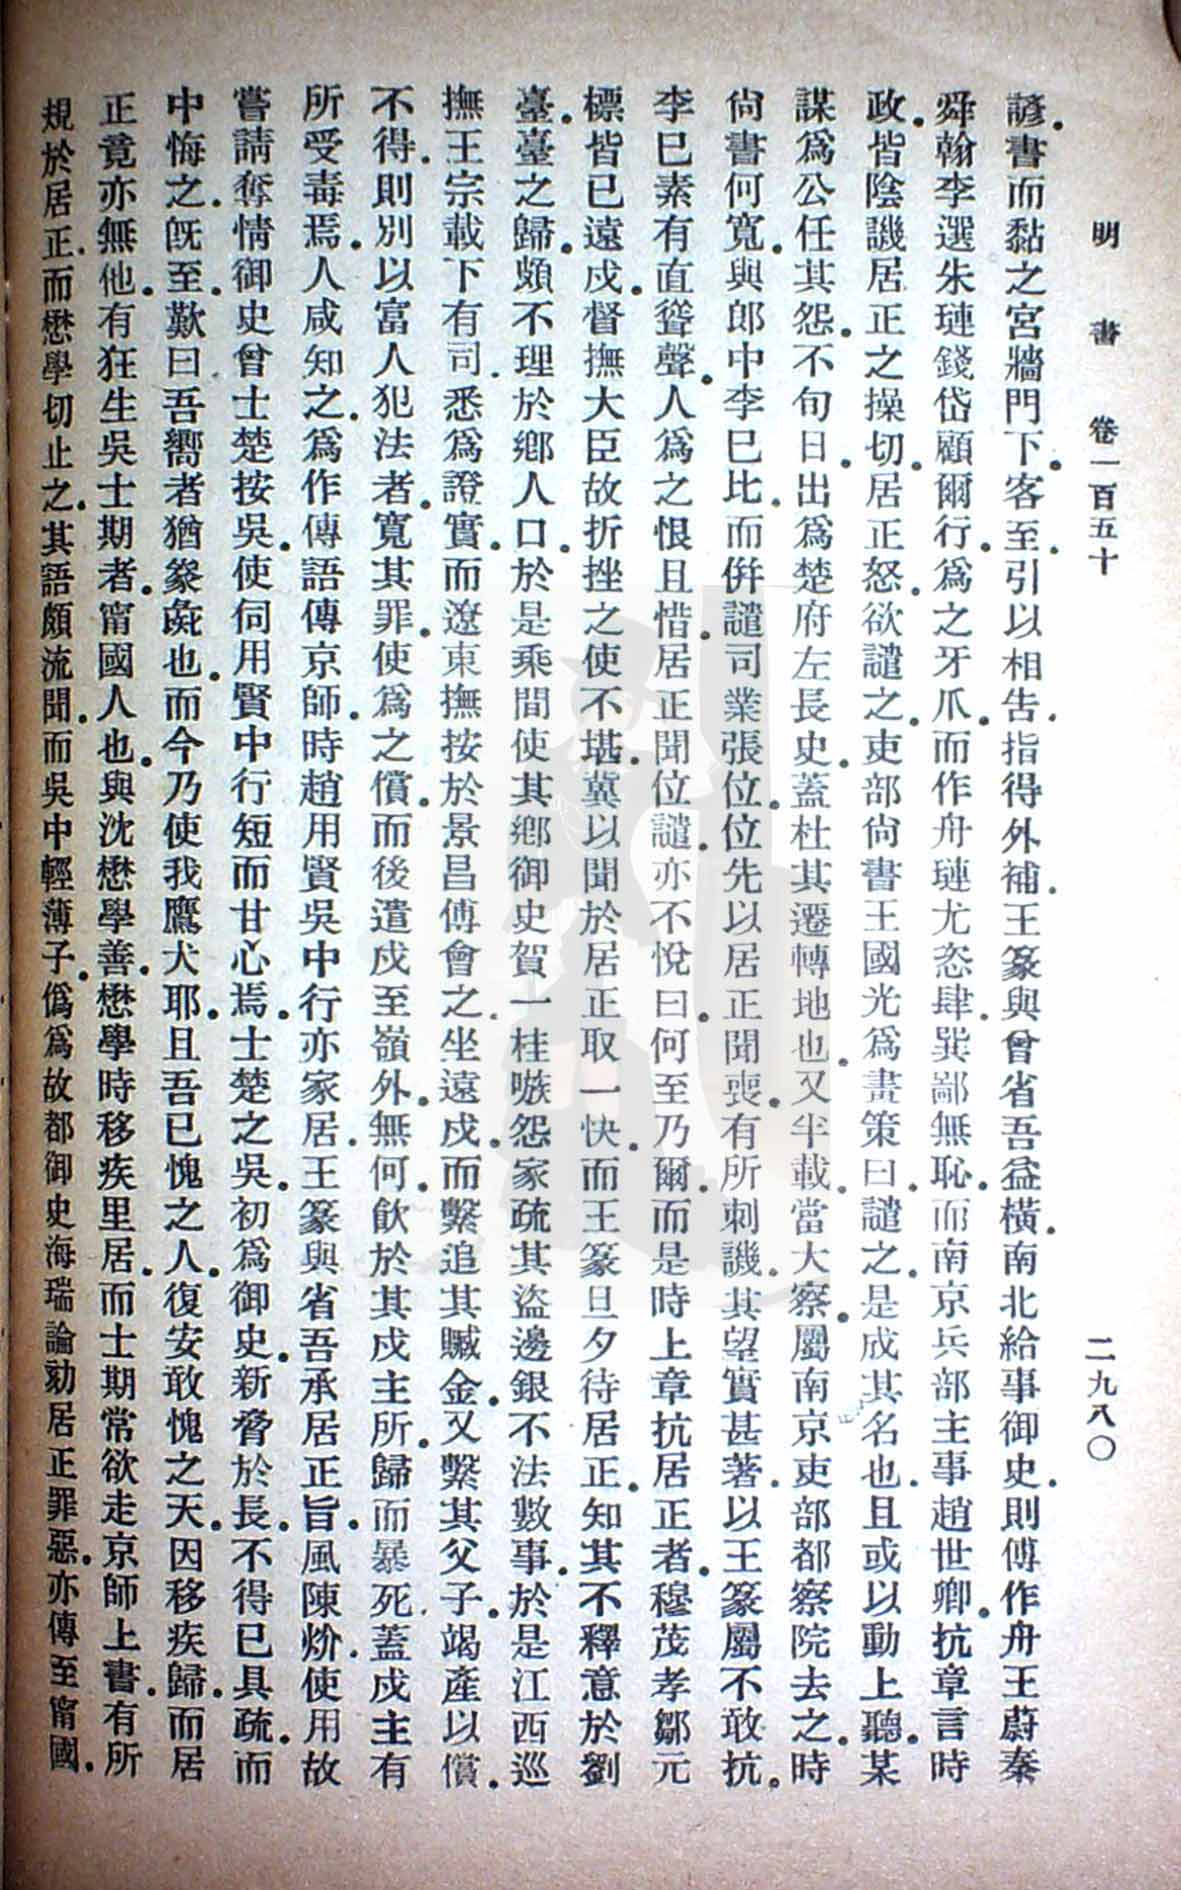 明書 卷一百五十 二九八〇
謗書而黏之宮牆門下.客至.引以相告.指得外補.王篆與曾省吾益橫.南北給事御史.則傅作舟王蔚秦
舜翰李選朱璉錢岱顧爾行.爲之牙爪.而作舟璉尤恣肆.巽鄙無恥.而南京兵部主事趙世卿.抗章言時
政.皆陰譏居正之操切.居正怒.欲譴之.吏部尙書王國光爲畫策曰.譴之.是成其名也.且或以動上聽.某
謀爲公任其怨.不旬日.出爲楚府左長史.蓋杜其遷轉地也.又半載.當大察.屬南京吏部都察院去之.時
尙書何寬.與郎中李巳比.而倂譴司業張位.位先以居正聞喪.有所刺譏.其望實甚著.以王篆屬不敢抗.
李巳素有直聲.人爲之恨且惜.居正聞位譴.亦不悅曰.何至乃爾.而是時上章抗居正者.穆茂孝鄒元
標皆已遠戍.督撫大臣故折挫之使不堪.冀以聞於居正取一快.而王篆旦夕待居正.知其不釋意於劉
臺.臺之歸.頗不理於鄕人口.於是乘間使其鄕御史賀一桂嗾怨家疏其盜邊銀不法數事.於是江西巡
撫王宗載下有司.悉爲證實.而遼東撫按於景昌傅會之.坐遠戍.而繫追其贓金.又繫其父子.竭產以償.
不得.則別以富人犯法者.寬其罪.使爲之償.而後遣戍至嶺外.無何.飮於其戍主所.歸而暴死.蓋戍主有
所受毒焉.人咸知之.爲作傳語傳京師.時趙用賢吳中行亦家居.王篆與省吾承居正旨.風陳炌.使用故
嘗請奪情御史曾士楚按吳.使伺用賢中行短而甘心焉.士楚之吳.初爲御史.新脅於長.不得已具疏.而
中悔之.旣至.歎曰吾嚮者猶篆彘也.而今乃使我鷹犬耶.且吾已愧之人.復安敢愧之天.因移疾歸.而居
正竟亦無他.有狂生吳士期者.甯國人也.與沈懋學善.懋學時移疾里居.而士期常欲走京師上書.有所
規於居正.而懋學切止之.其語頗流聞.而吳中輕薄子.僞爲故都御史海瑞論劾居正罪惡.亦傳至甯國.